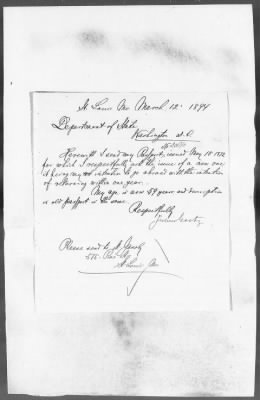 St Louis Mo March 12 1894
Department of State
Washington D.C.
Herewith I send my Passport, issued May 18 1872
for which I respectfully ask the issue of a new one
it being my intention to go abroad with the intention
of returning within one year.
My age is now 59 years and description
in old passport is the same.
Respectfully
Please send to
St Louis Mo